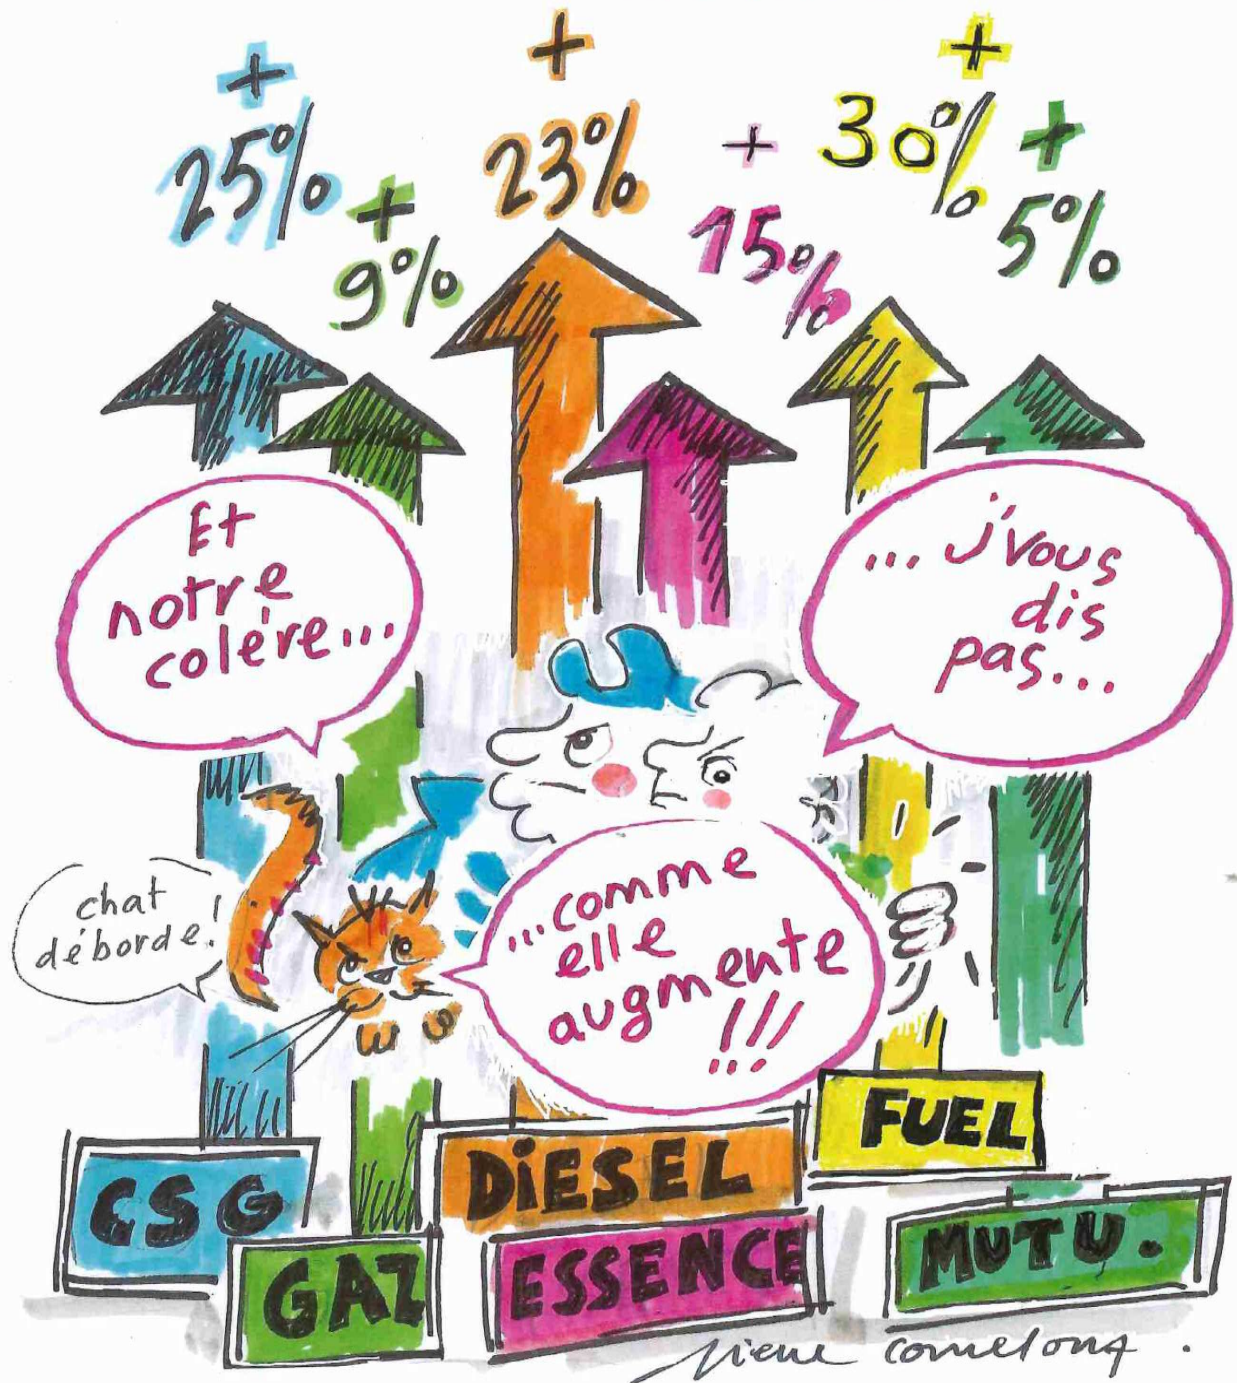 +
25%
+
9%
+
23%
+
15%
+
30%
+
5%
Et
notre
colère...
... j'vous
dis
pas...
chat
déborde!
...comme
elle
augmente
!!!
CSG
GAZ
DiESEL
ESSENCE
FUEL
MUTU.